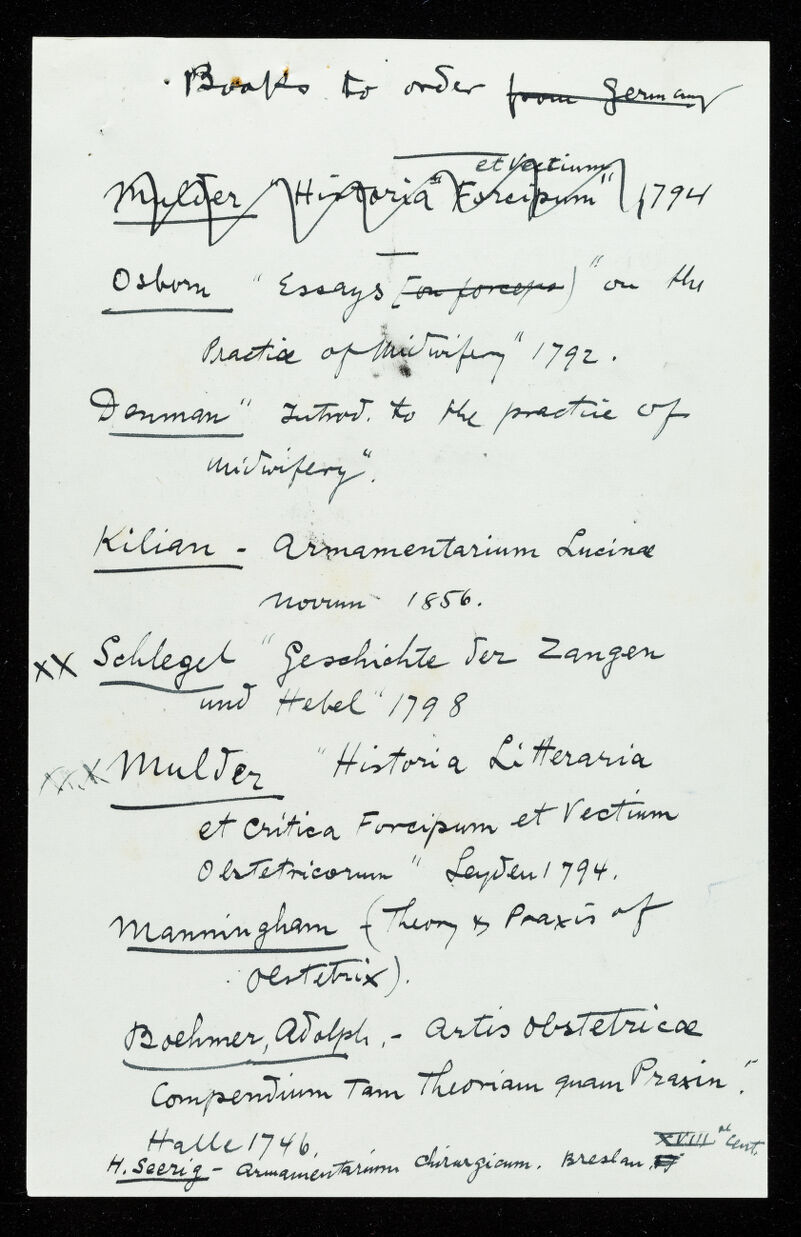 Books to order from Germany
et Vectium
Mulder "Historia" Forcipum" 1794
Osborn "Essays (on forceps)" on the
Practice of Midwifery" 1792.
Denman "Introd. to the practice of
Midwifery".
Kilian - Armamentarium Lucinæ
novum 1856.
XX Schlegel "Geschichte der Zangen
und Hebel" 1798
XXX Mulder "Historia Litteraria
et Critica Forcipum et Vectium
Obstetricorum" Leyden 1794.
Manningham - (Theory & Praxis of
Obstetrix).
Boehmer, Adolph. - Artis Obstetricæ
Compendium Tam Theoriam quam Praxin".
Halle 1746.
XVIII Cent.
H. Seerig - Armamentarium Chirurgicum. Breslau.